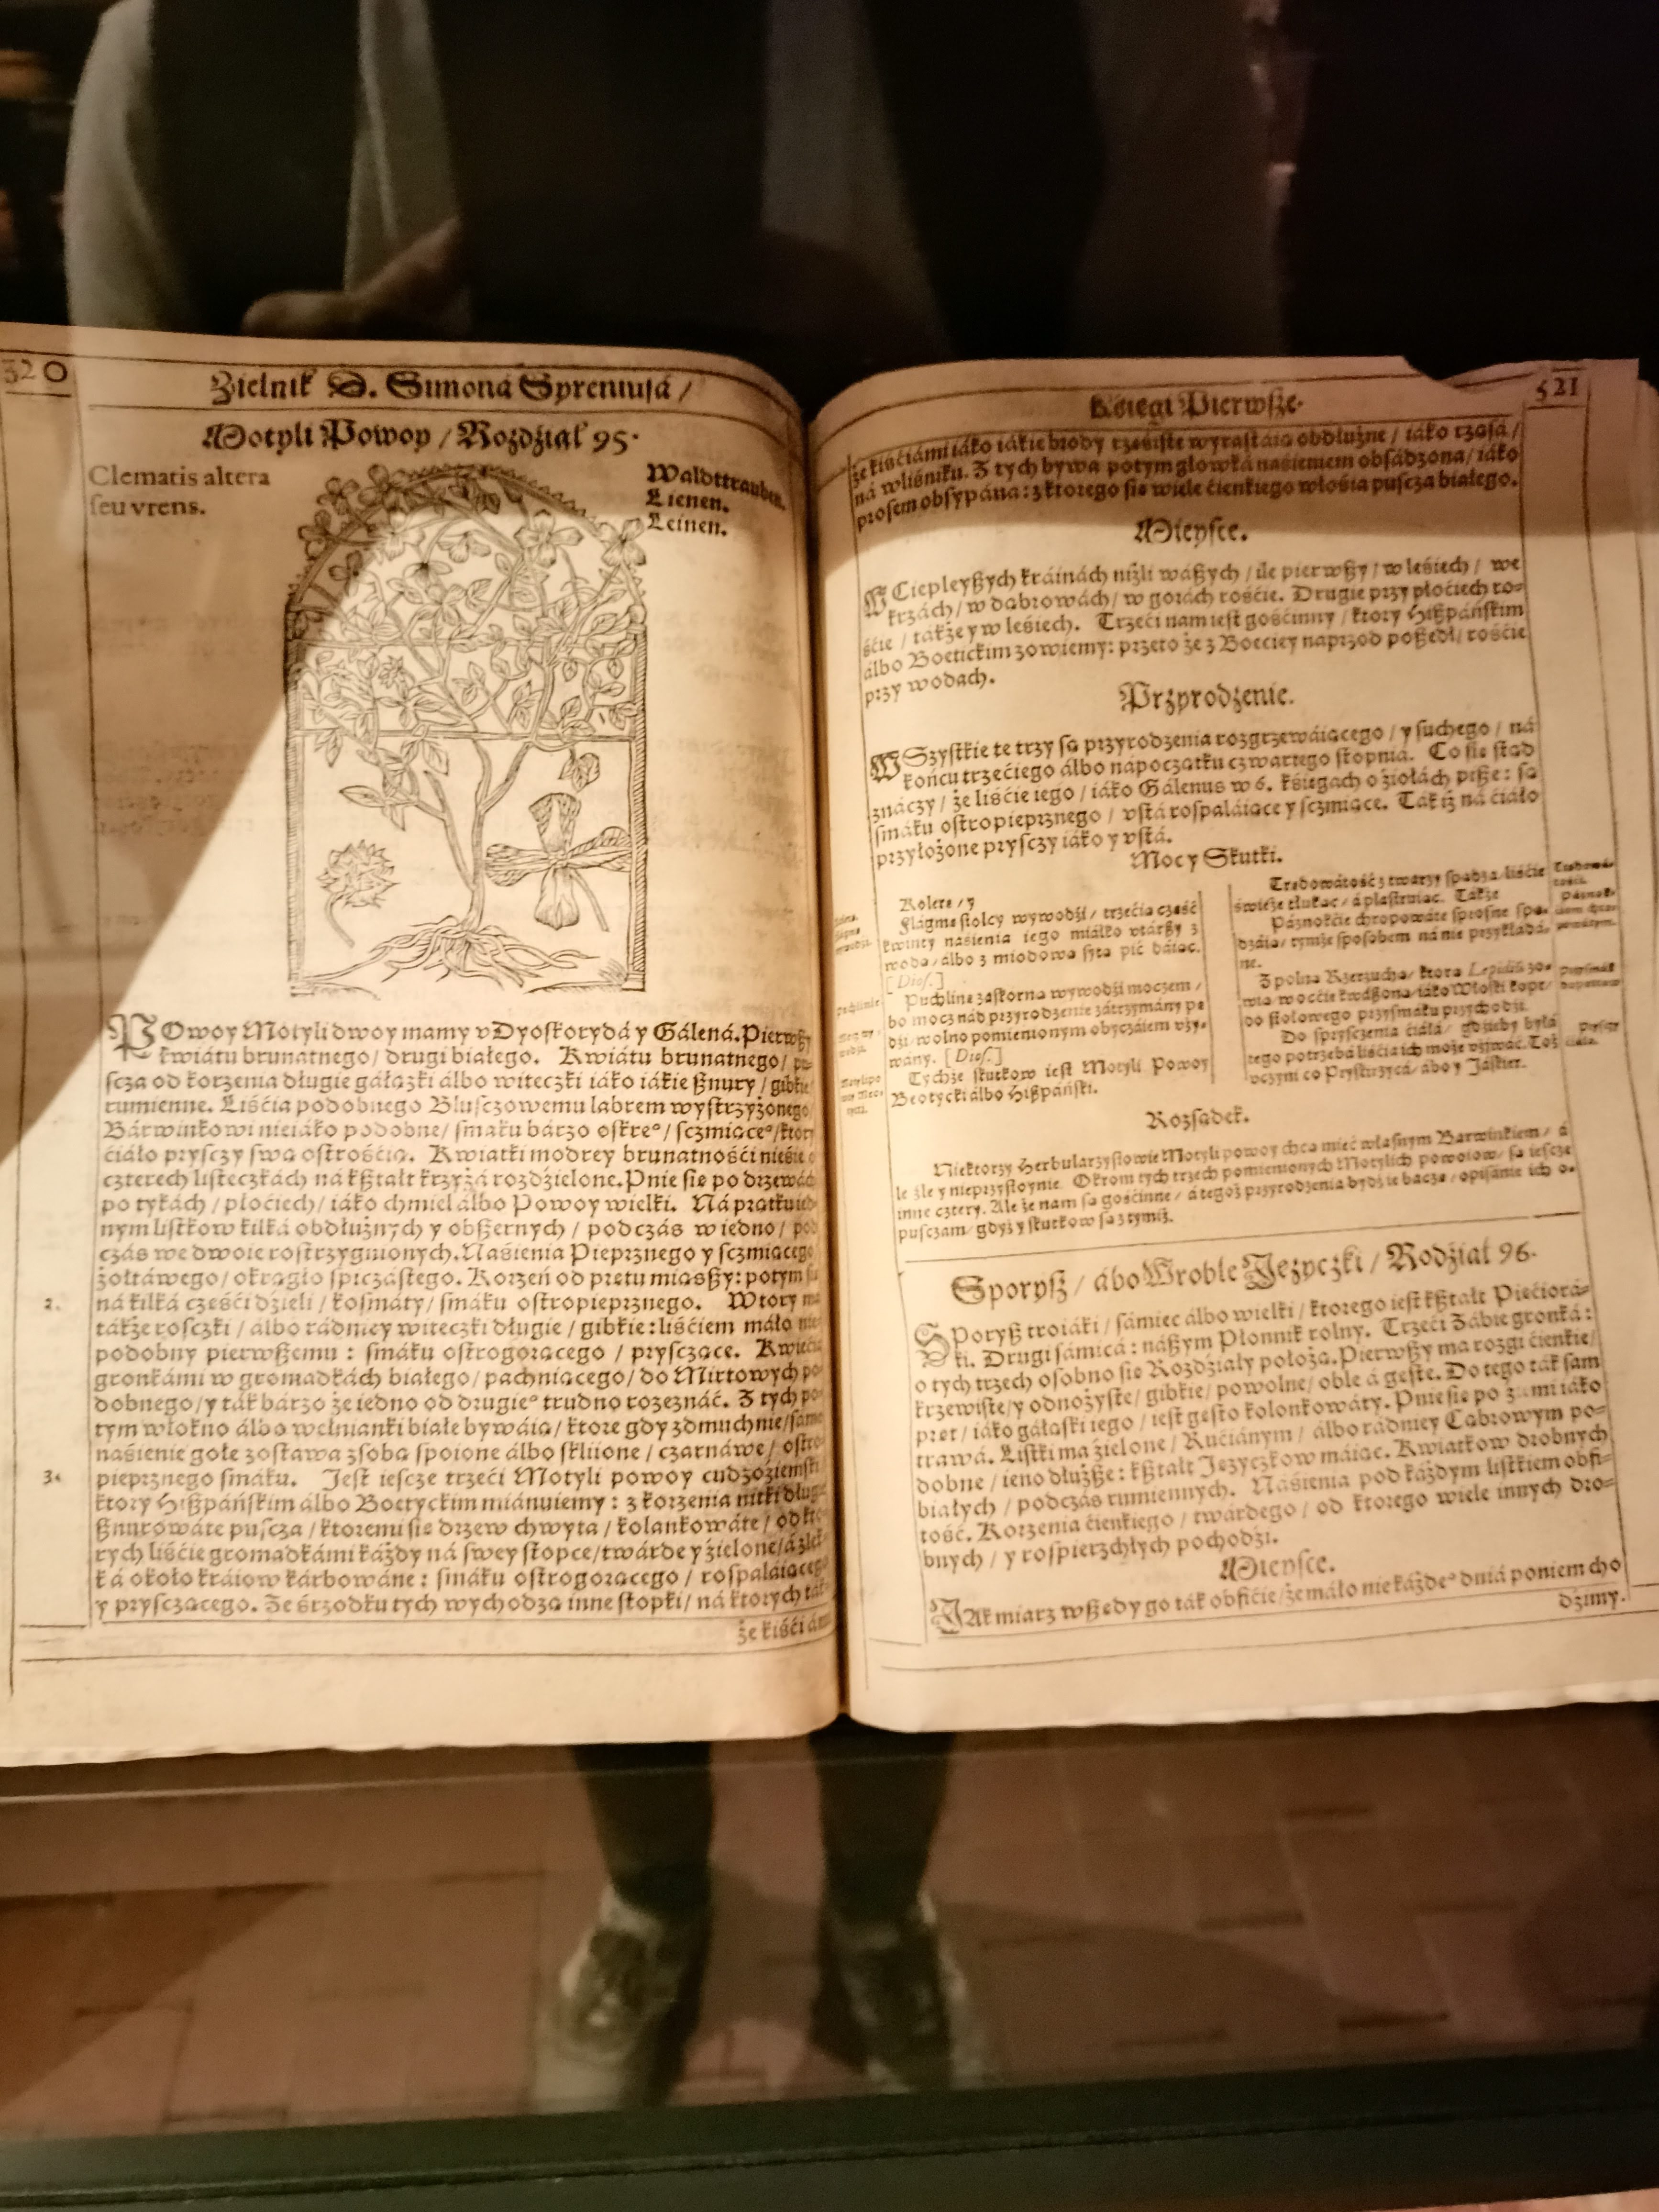 520
Zielnik D. Simona Syreniusa /
Motyli Powoy / Rozdźiał 95.
Clematis altera
seu vrens.
Waldttrauben.
Lienen.
Leinen.
POwoy Motyli dwoy mamy v Dyoskorydá y Gálená. Pierwßy
kwiátu brunatnego / drugi białego. Kwiátu brunatnego /
szcza od korzenia długie gáłązki álbo witeczki iáko iákie ßnury / gibkie
rumienne. Liścia podobnego Bluszczowemu labrem wystrzyżonego
Bárwinkowi nieiáko podobne / smáku bárzo ostre° / szczmiące° / ktory
ćiáło pryszczy swą ostrośćią. Kwiatki modrey brunatnośći nieśie
czterech listeczkách ná kßtałt krzyżá rozdźielone. Pnie się po drzewách
po tykách / płoćiech / iáko chmiel álbo Powoy wielki. Ná prątku
nym listkow kilká obdłużnych y obßernych / podczás w iedno /
czás we dwoie rostrzygnionych. Naśienia Pieprznego y szczmiącego
żołtáwego / okrągło spiczástego. Korzeń od prętu miąsßy: potym
2. ná kilká częśći dźieli / kosmáty / smáku ostropieprznego. Wtory
tákże roszczki / álbo rádniey witeczki długie / gibkie: liśćiem máło
podobny pierwßemu : smáku ostrogorącego / pryszczące.
gronkámi w gromadkách białego / pachniącego / do Mirtowych
dobnego / y ták bárzo że iedno od drugie° trudno rozeznáć. Z tych
tym włokno álbo wełnianki białe bywáią / ktore gdy zdmuchnie /
naśienie gołe zostawa z sobą spoione álbo skliione / czarnáwe /
3. pieprznego smáku. Jest ieszcze trzeći Motyli powoy cudzoźiemski
ktory Hißpáńskim álbo Boetyckim miánuiemy : z korzenia nitki długie
ßnurowáte puszcza / ktoremi się drzew chwyta / kolankowáte /
rych liśćie gromadkámi káżdy ná swey stopce / twárde y źielone /
ká około kráiow kárbowáne : smáku ostrogorącego / rospaláiącego
y pryszczącego. Ze śrzodku tych wychodzą inne stopki / ná ktorych
że kiśćiámi
Księgi Pierwsze.
521
że kiśćiámi iáko iákie brody rzęsiste wyrastáią obdłużne / iáko rzęsá /
ná wliśniku. Z tych bywa potym głowká naśieniem obsádzona / iáko
prosem obsypána: z ktorego się wiele ćienkiego włośia puszcza białego.
Mieysce.
W Ciepleyßych kráinách niżli wáßych / ile pierwßy / w leśiech / we
krzách / w dąbrowách / w gorách rośćie. Drugie przy płoćiech ro-
śćie / tákże y w leśiech. Trzeći nam iest gośćinny / ktory Hißpáńskim
álbo Boetickim zowiemy: przeto że z Boeciey naprzod poßedł / rośćie
przy wodách.
Przyrodzenie.
WSzystkie te trzy są przyrodzenia rozgrzewáiącego / y suchego / ná
końcu trzećiego álbo ná początku czwartego stopnia. Co się stąd
znáczy / że liśćie iego / iáko Gálenus w 6. księgach o źiołách piße: są
smáku ostropieprznego / vstá rospaláiące y szczmiące. Ták iż ná ćiáło
przyłożone pryszczy iáko y vstá.
Moc y Skutki.
Kolere / y
Flágmę stolcy wywodźi / trzećia część
kwinty naśienia iego miáłko vtárßy z
wodą / álbo z miodową sytą pić dáiąc.
[Dios.]
Puchlinę zaskorną wywodźi moczem /
bo mocz nád przyrodzenie zátrzymány pę-
dźi / wolno pomienionym obyczáiem vży-
wány. [Dios.]
Tychże skutkow iest Motyli Powoy
Beotycki álbo Hißpáński.
Trędowátość z twarzy spądza / liśćie
świeże tłukąc / á plastruiąc. Tákże
Páznokćie chropowáte sprosne spą-
dzáią / tymże sposobem ná nie przykłádá-
ne.
Z polną Rzerzuchą / ktorą Lepidiũ zo-
wią / w occie kwáßona / iáko Włoski kopr /
do stołowego przysmáku przychodźi.
Do spryszczenia ćiáłá / gdźieby była
tego potrzebá liśćia ich może vżywáć. Toż
vczyni co Pryszczycá / ábo y Jáskier.
Rozsądek.
Niektorzy Herbularzystowie Motyli powoy chcą mieć własnym Barwinkiem / á
le źle y nieprzystoynie. Okrom tych trzech pomienionych Motylich powoiow / są ieszcze
inne cztery. Ale że nam są gośćinne / á tegoż przyrodzenia bydź ie baczę / opisánie ich o-
puszczam / gdyż y skutkow są z tymiż.
Sporyß / ábo Wroble Języczki / Rodźiał 96.
SPoryß troiáki / sámiec álbo wielki / ktorego iest kßtałt Pięćiorá-
ki. Drugi sámicá : náßym Płonnik rolny. Trzeći Żábie gronká :
o tych trzech osobno się Rozdźiały położą. Pierwßy ma rozgi ćienkie /
krzewiste / y odnożyste / gibkie / powolne / obłe á gęste. Do tego ták sam
pręt / iáko gáłąski iego / iest gęsto kolonkowáty. Pnie się po źiemi iáko
trawá. Listki ma źielone / Rućiánym / álbo rádniey Cąbrowym po-
dobne / ieno dłużße : kßtałt Języczkow máiąc. Kwiatkow drobnych
białych / podczás rumiennych. Naśienia pod káżdym listkiem obfi-
tość. Korzenia ćienkiego / twárdego / od ktorego wiele innych dro-
bnych / y rospierzchłych pochodźi.
Mieysce.
JAk miarz wßędy go ták obficie / że máło nie káżde° dniá po niem cho
dźimy.